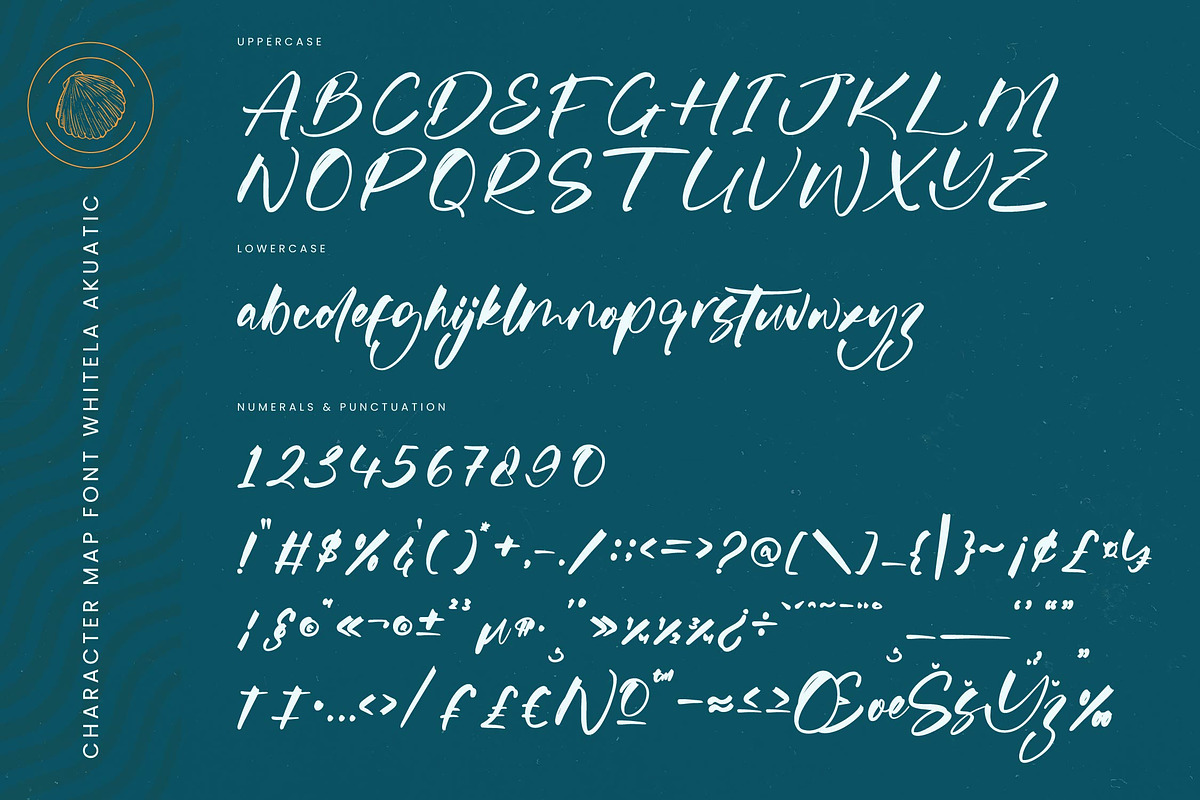 UPPERCASE
ABCDEFGHIJKLM
NOPQRSTUVWXYZ
LOWERCASE
abcdefghijklmnopqrstuvwxyz
NUMERALS & PUNCTUATION
1234567890
!"#$%&'()*+,-./:;<=>?@[\]_{|}~¡¢£¤
¦§©ª«¬®±²³µ¶·¸¹º»¼½¾¿÷
†‡•…‹›/ƒ£€№™−≈≤≥ŒœŠšŸž‰
CHARACTER MAP FONT WHITELA AKUATIC